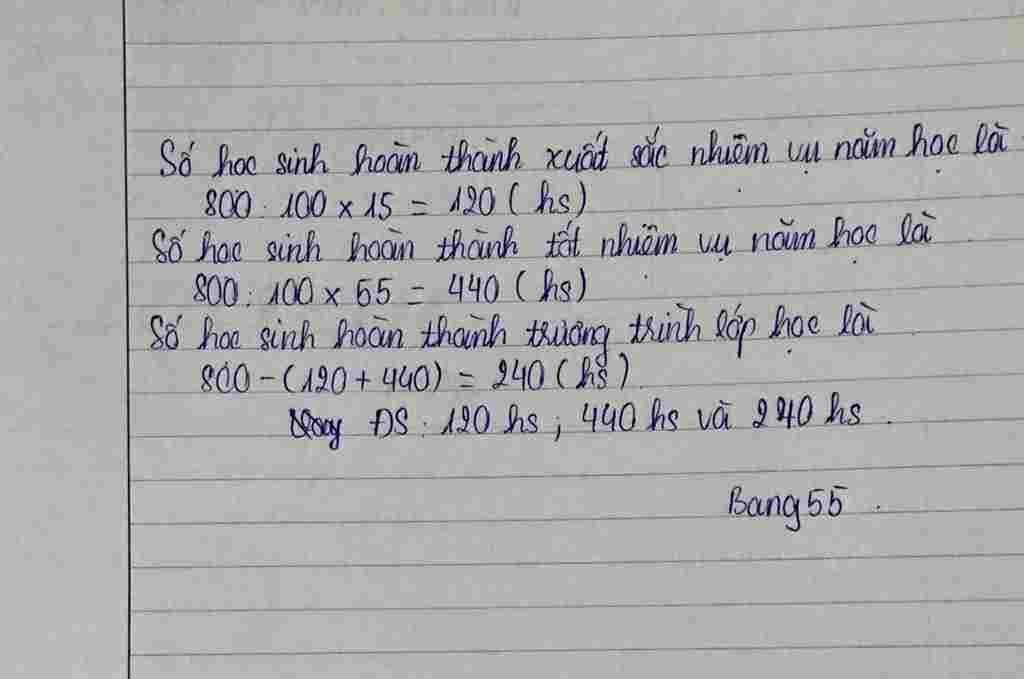 Số học sinh hoàn thành xuất sắc nhiệm vụ năm học là
800 : 100 x 15 = 120 (hs)
Số học sinh hoàn thành tốt nhiệm vụ năm học là
800 : 100 x 55 = 440 (hs)
Số học sinh hoàn thành trương trình lớp học là
800 - (120 + 440) = 240 (hs)
ĐS : 120 hs ; 440 hs và 240 hs .
Bang55 .